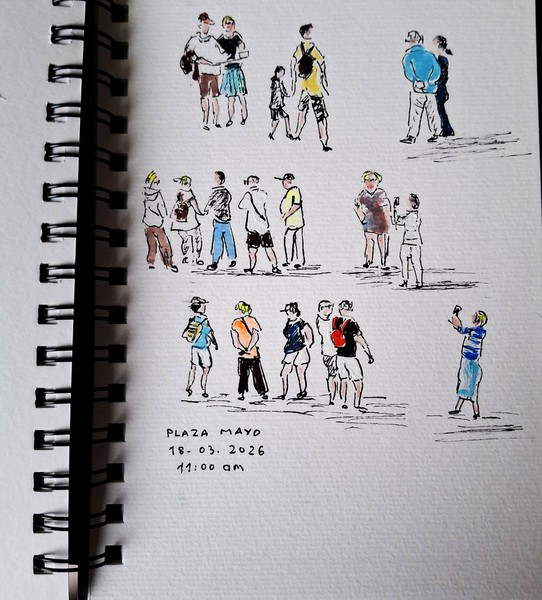 PLAZA MAYO
18-03.2026
11:00 am